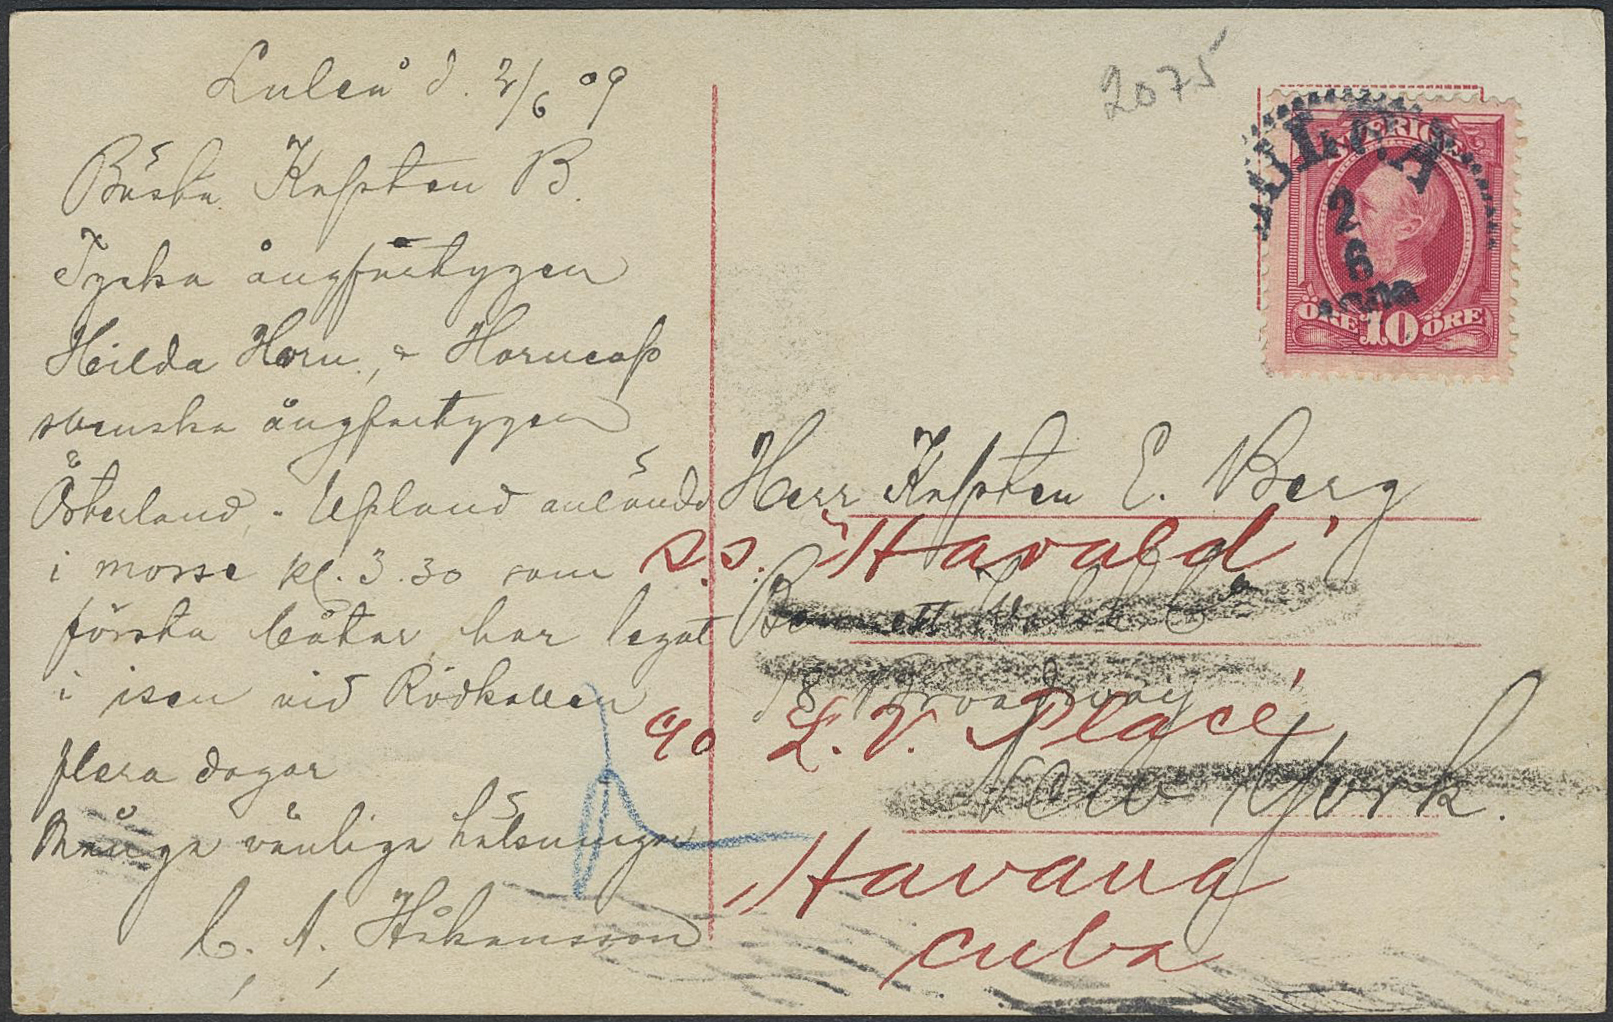 Luleå d. 2/6 09
Bästa Kapten B.
Tyska ångfartygen
Hilda Horn, & Horncap
svenska ångfartygen
Österland - Upland anlände
i morse kl. 3.30 som
första båtar har legat
i isen vid Rödkallen
flera dagar
Många vänliga hälsningar
C. A. Håkansson
2075
SVERIGE
LULEÅ
2
6
ÖRE 10 ÖRE
Herr Kapten E. Berg
S.S. "Havald"
Bennett Co
18 Broadway
c/o L. V. Placé
New York.
Havana
Cuba